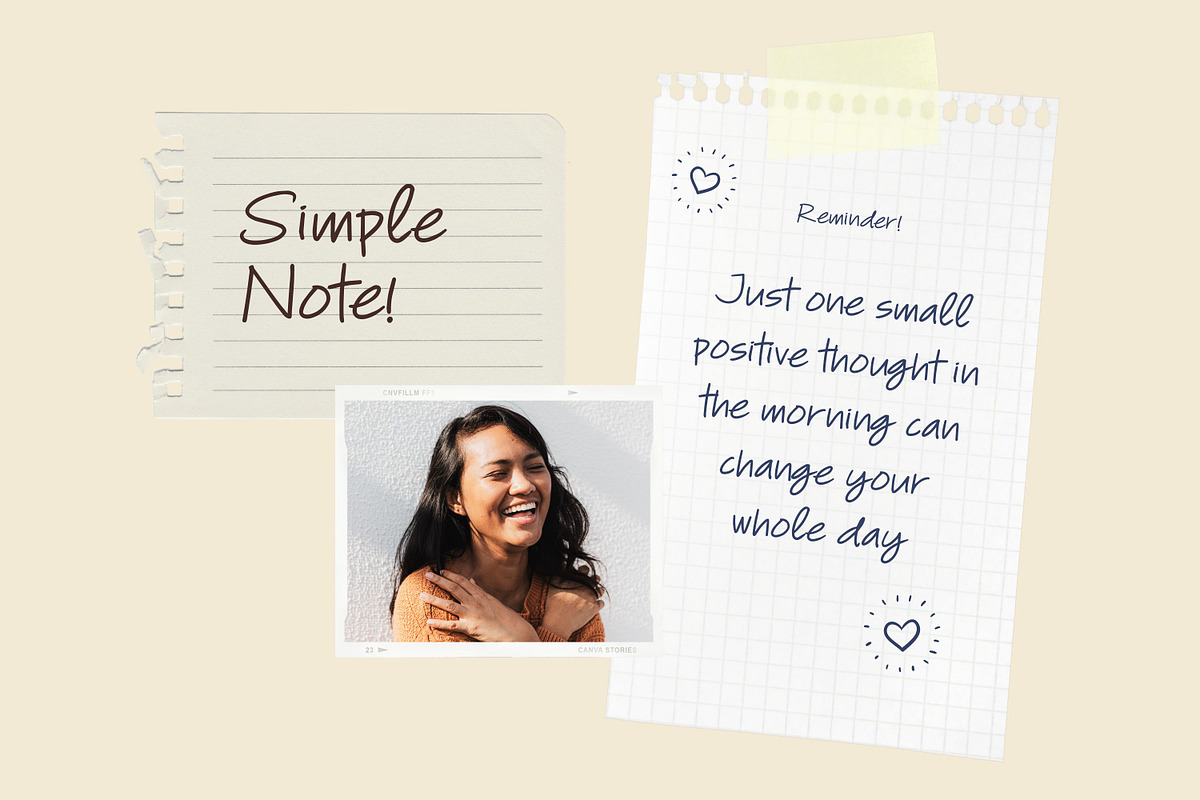 Simple
Note!
CNVFILLM FF1
23
CANVA STORIES
Reminder!
Just one small
positive thought in
the morning can
change your
whole day